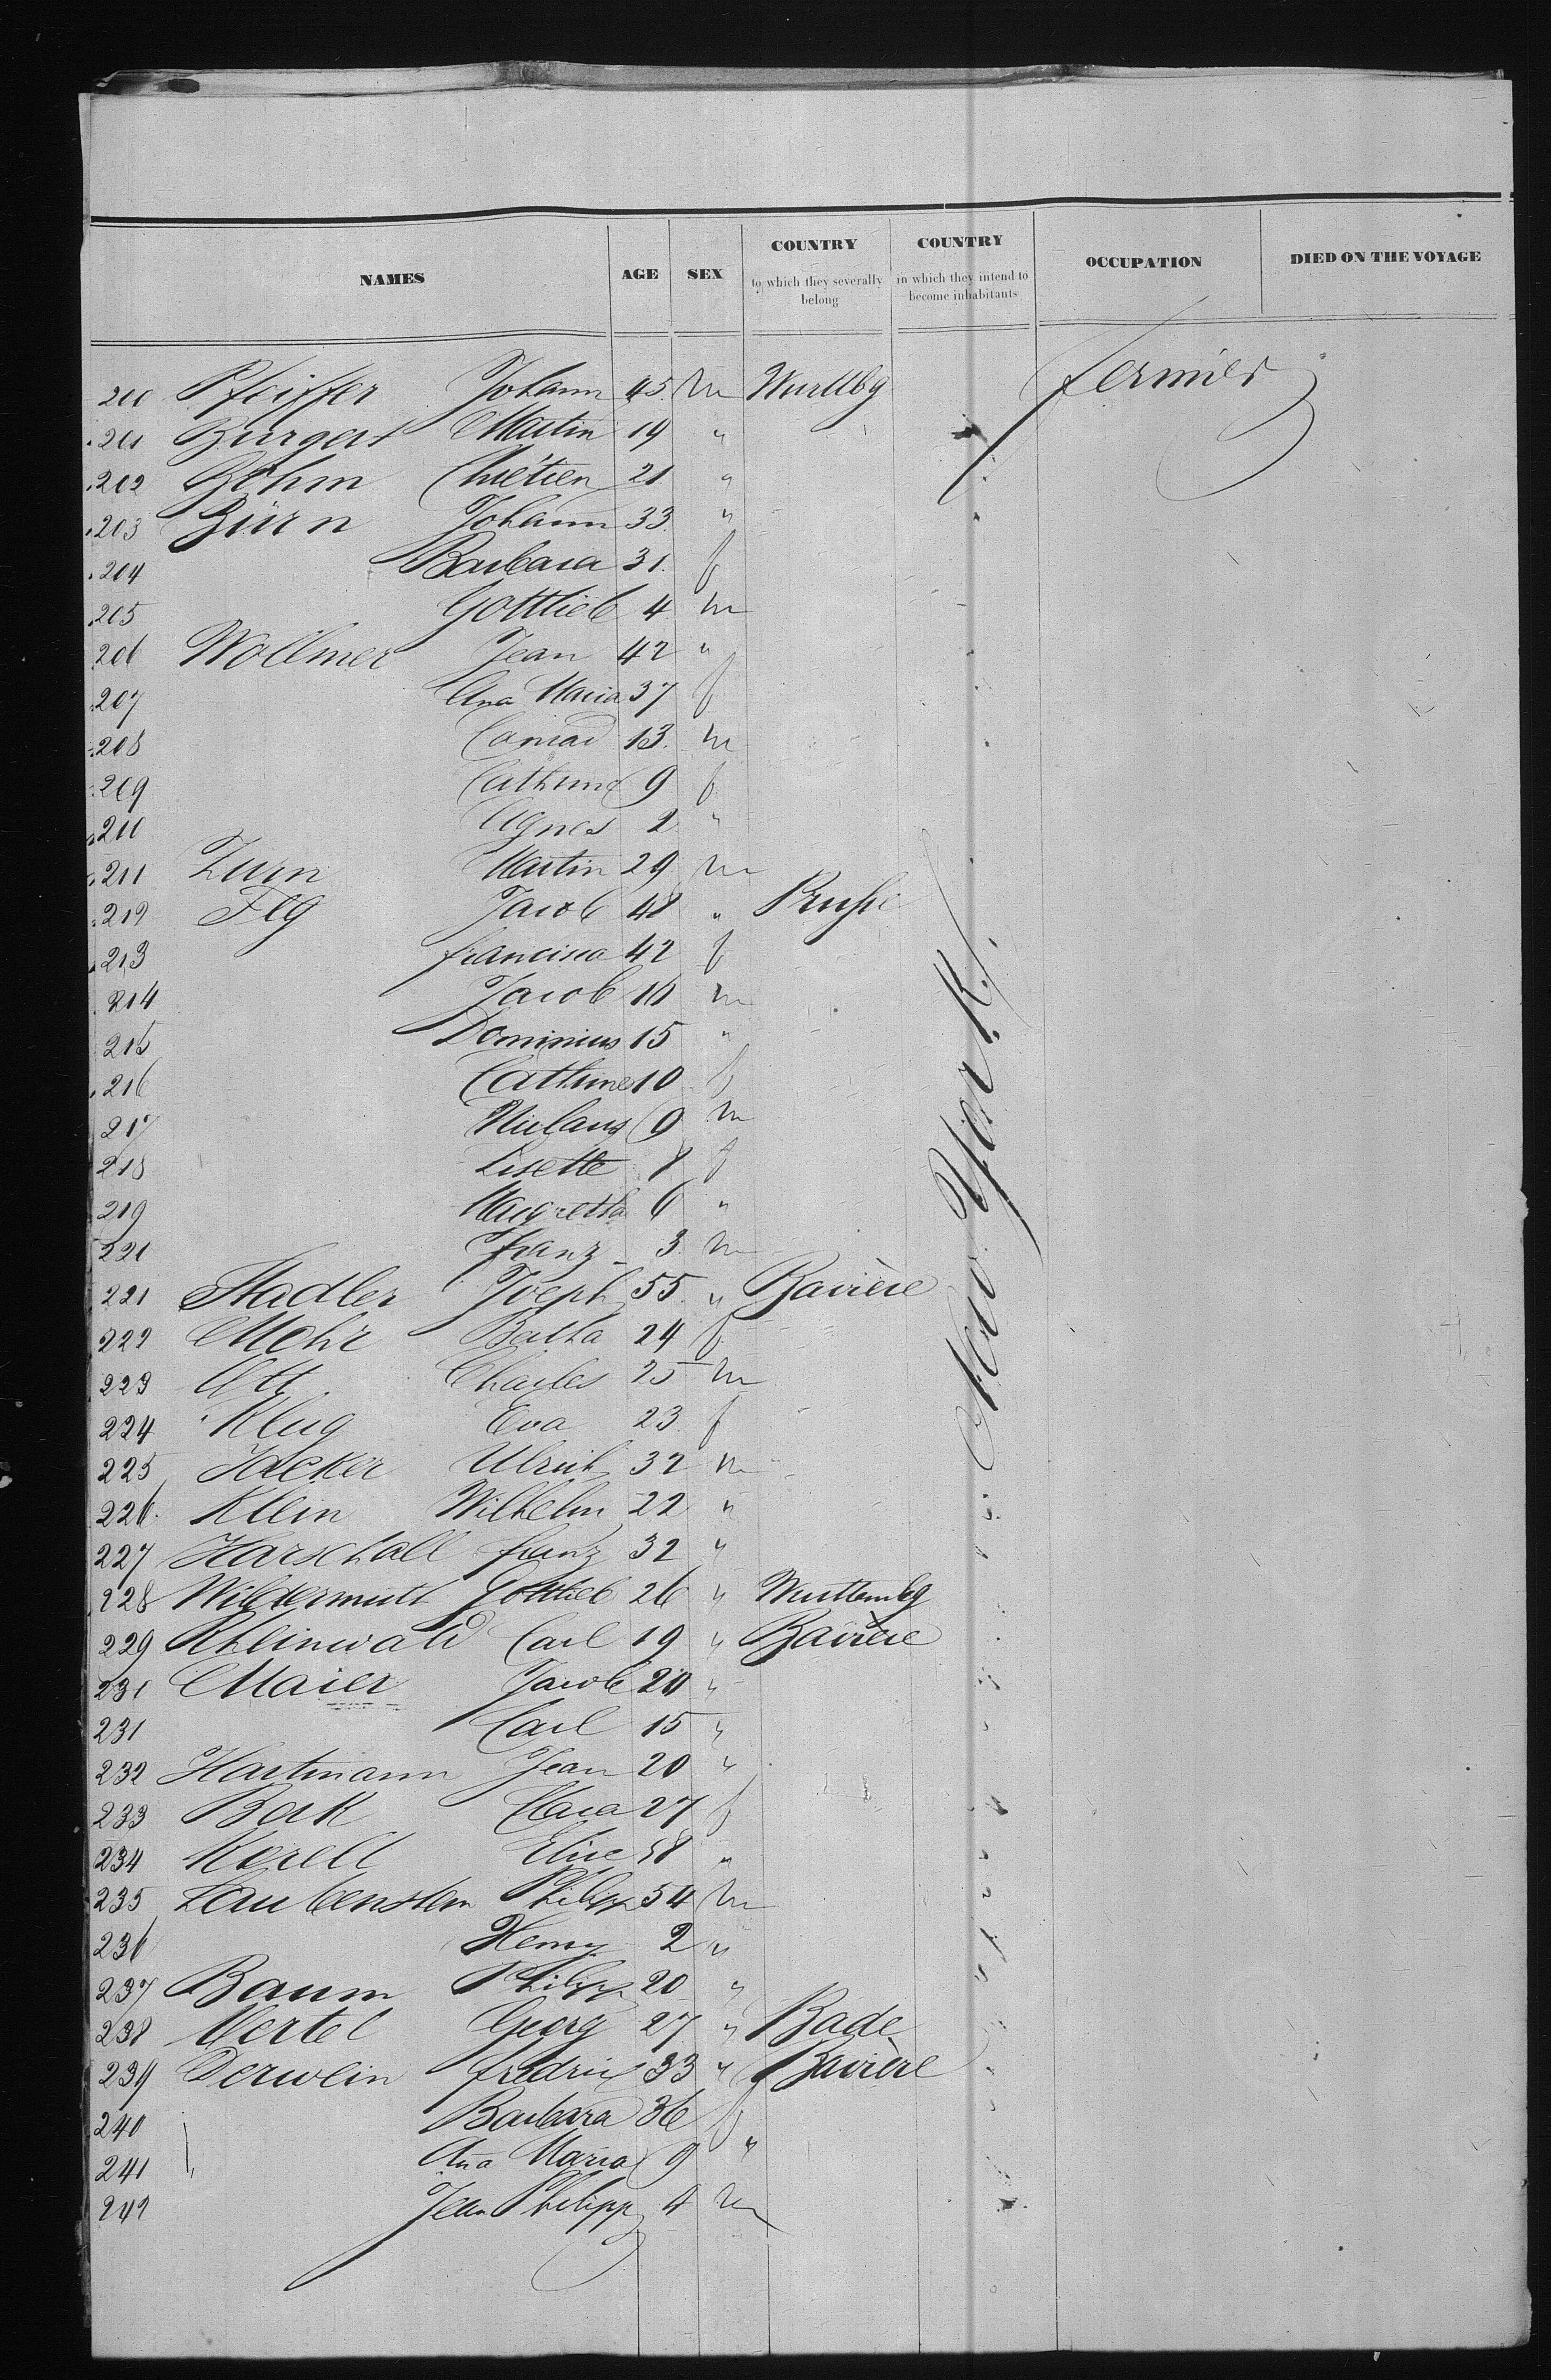 NAMES AGE SEX COUNTRY to which they severally belong COUNTRY in which they intend to become inhabitants OCCUPATION DIED ON THE VOYAGE
200 Pfeiffer Johann 45 m Wurttbg fermier
201 Burgert Martin 19 "
202 Böhm Chrétien 21 "
203 Zürn Johann 33 "
204 Barbara 31 f
205 Gottlieb 4 m
206 Wollmer Jean 42 "
207 Ana Maria 37 f
208 Conrad 13 m
209 Cathrine 9 f
210 Agnes 2 "
211 Zurn Martin 29 m
212 Flg Jacob 48 " Prusse
213 francisca 42 f
214 Jacob 10 m
215 Dominicus 15 "
216 Cathrine 10 f
217 Niclaus 9 m
218 Lisette 8 f
219 Margretha 6 "
221 franz 3 m
221 Stadler Joseph 55 " Bavière
222 Mohr Batha 24 f
223 Ott Charles 25 m
224 Klug Eva 23 f
225 Hacker Ulrich 32 m
226 Klein Wilhelm 22 "
227 Harschall franz 32 "
228 Wildermutt Gottlieb 26 " Wurttembg
229 Rheinwald Carl 19 " Bavière
231 Maier Jacob 20 "
231 Carl 15 "
232 Hartmann Jean 20 "
233 Berk Clara 27 f
234 Korell Elise 58 "
235 Laubenstein Philipp 54 m
236 Henry 2 "
237 Baum Philipp 20 "
238 Mertel Georg 27 " Bade
239 Derwein fredric 33 " Bavière
240 Barbara 36 f
241 Ana Maria 9 "
242 Jean Philipp 4 m
New York